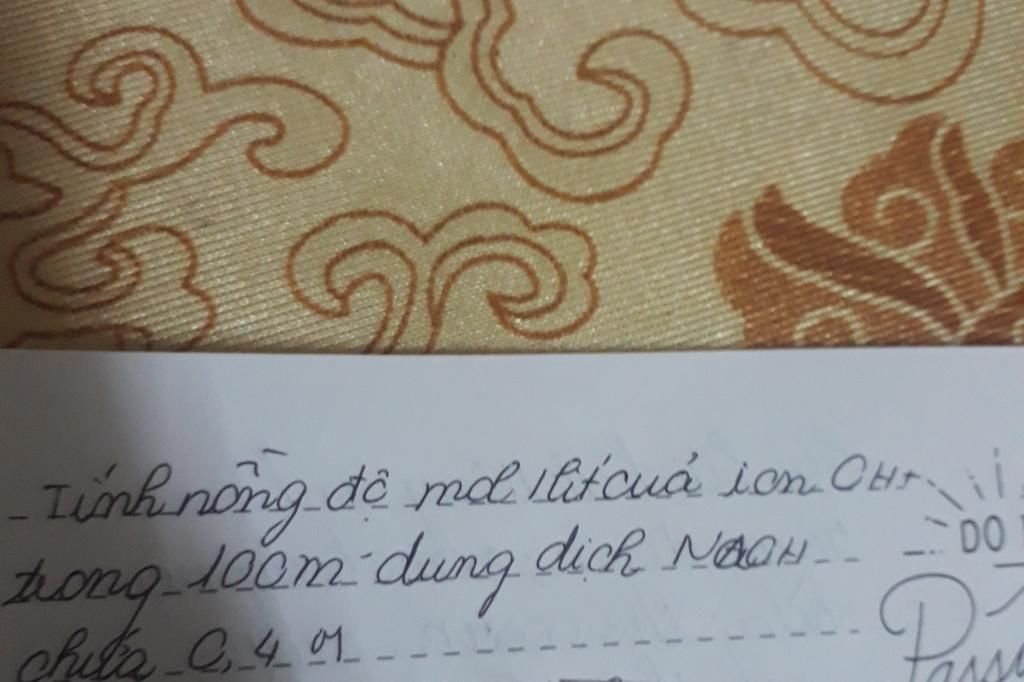 - Tính nồng độ mol/lit cuả ion OH-
trong 100m dung dịch NaOH
chứa 0,4 g
DO